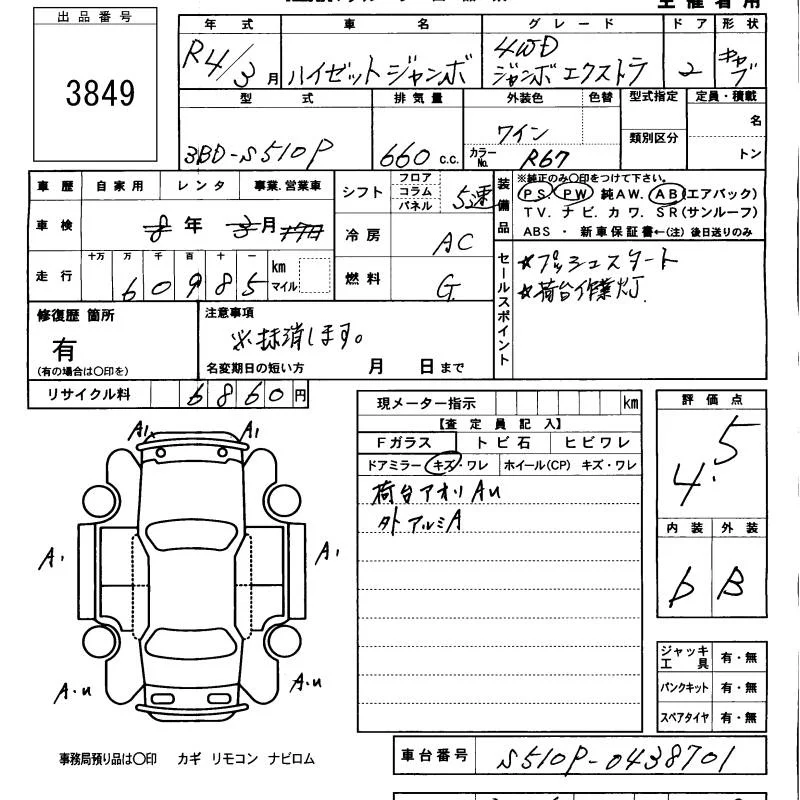 主催者用
出品番号
3849
年式 車名 グレード ドア 形状
R4/3月 ハイゼットジャンボ 4WD ジャンボエクストラ 2 キャブ
型式 排気量 外装色 色替 型式指定 定員・積載
3BD-S510P 660 c.c. ワイン 類別区分 名
カラーNo. R67 トン
車歴 自家用 レンタ 事業.営業車
シフト フロア コラム パネル 5速
装備品 ※純正のみ〇印をつけて下さい。
PS. PW. 純AW. AB(エアバック)
TV. ナビ. カワ. SR(サンルーフ)
ABS ・ 新車保証書←(注) 後日送りのみ
車検 8年 3月
冷房 AC
走行 十万 万 千 百 十 一 km マイル
6 0 9 8 5
燃料 G
セールスポイント
☆プッシュスタート
☆荷台作業灯
修復歴 箇所
有
(有の場合は〇印を)
注意事項
※抹消します。
名変期日の短い方 月 日まで
リサイクル料 6 8 6 0 円
現メーター指示 km
【査定員記入】
Fガラス トビ石 ヒビワレ
ドアミラー キズ・ワレ ホイール(CP) キズ・ワレ
荷台アオリ AU
外 アルミA
評価点
4.5
内装 外装
b B
A1 A1
A1 A1
A.u A.u
ジャッキ工具 有・無
パンクキット 有・無
スペアタイヤ 有・無
事務局預り品は〇印 カギ リモコン ナビロム
車台番号 S510P-0438701